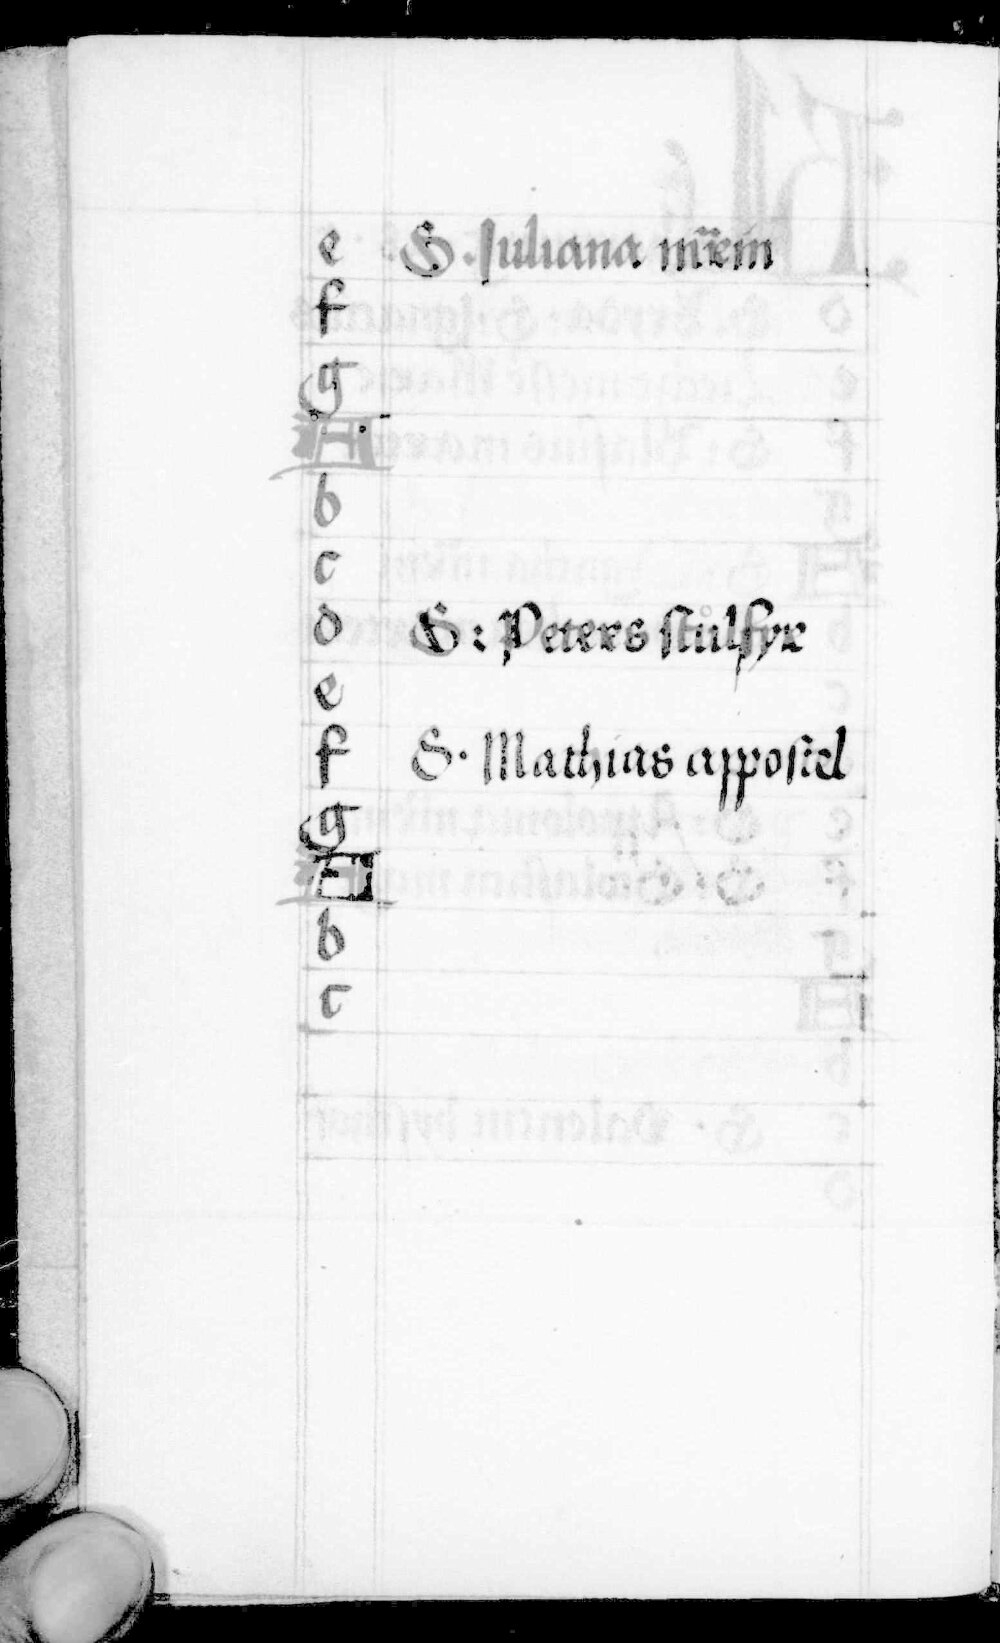 e S. Juliana m̄rein
f
g
A
b
c
d S: Peters stůlfyr
e
f S. Mathias appostel
g
A
b
c